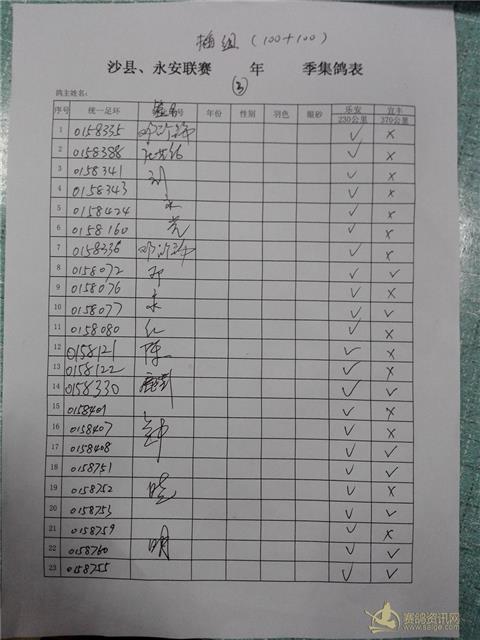 插组 (100+100)
沙县、永安联赛 年 季集鸽表
③
鸽主姓名:
序号 统一足环 号 年份 性别 羽色 眼砂 乐安 230公里 宜丰 370公里
1 0158335 ✓ ×
2 0158388 ✓ ×
3 0158341 刘 ✓ ×
4 0158343 ✓ ×
5 0158424 ✓ ×
6 0158160 ✓ ×
7 0158336 ✓ ×
8 0158072 ✓ ✓
9 0158076 ✓ ×
10 0158077 ✓ ✓
11 0158080 红 ✓ ×
12 0158121 陈 ✓ ×
13 0158122 ✓ ×
14 0158330 ✓ ✓
15 0158401 ✓ ×
16 0158407 钟 ✓ ×
17 0158408 ✓ ✓
18 0158751 ✓ ✓
19 0158752 晓 ✓ ×
20 0158753 ✓ ✓
21 0158759 ✓ ×
22 0158760 明 ✓ ✓
23 0158755 ✓ ✓
赛鸽资讯网
www.saige.com